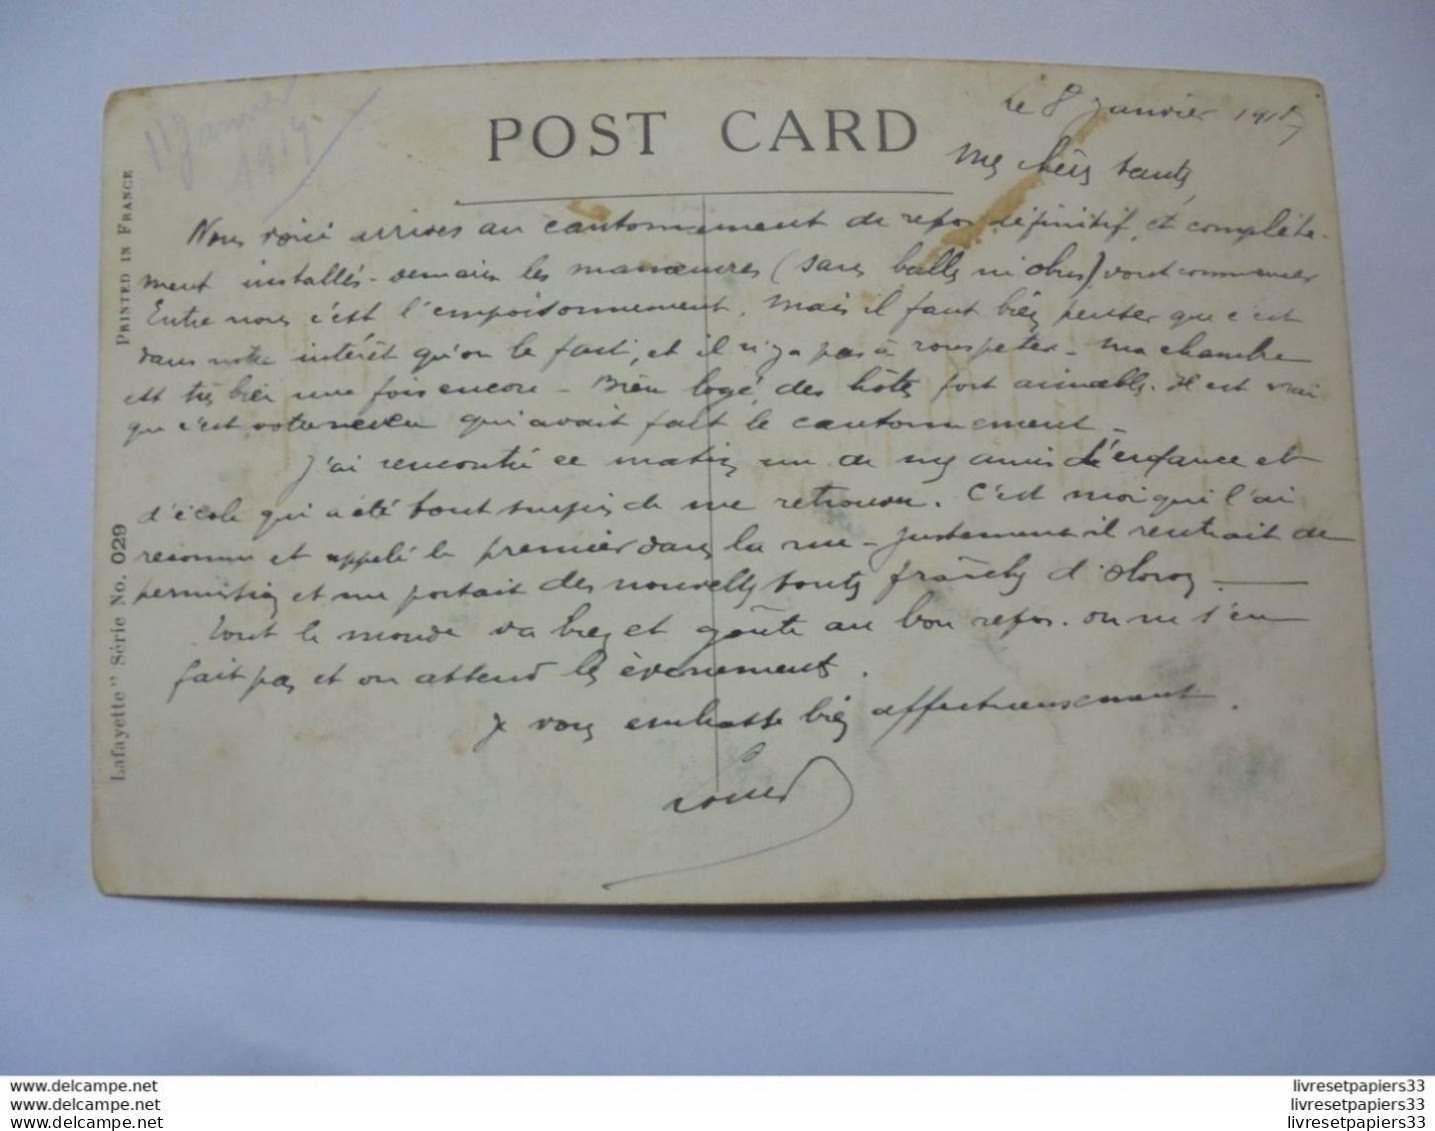 11 Janvier
1917
POST CARD
Le 8 janvier 1917
Mes chères tantes,
Nous voici arrivés au cantonnement de repos définitif, et complète-
ment installés - demain les manœuvres (sans balles ni obus) vont commencer
Entre nous c'est l'empoisonnement. Mais il faut bien penser que c'est
dans notre intérêt qu'on le fait, et il n'y a pas à rouspéter - Ma chambre
est très bien une fois encore - Bien logé, des hôtes fort aimables. Il est vrai
que c'est votre neveu qui avait fait le cantonnement -
J'ai rencontré ce matin un de mes amis d'enfance et
d'école qui a été tout surpris de me retrouver. C'est moi qui l'ai
reconnu et appelé le premier dans la rue - Justement il rentrait de
permission et me portait des nouvelles toutes fraîches d'Oloron
Tout le monde va bien et goûte au bon repos. on ne s'en
fait pas et on attend les évènements.
Je vous embrasse bien affectueusement.
Louis
PRINTED IN FRANCE
Lafayette" Série No. 029
www.delcampe.net
www.delcampe.net
www.delcampe.net
livresetpapiers33
livresetpapiers33
livresetpapiers33